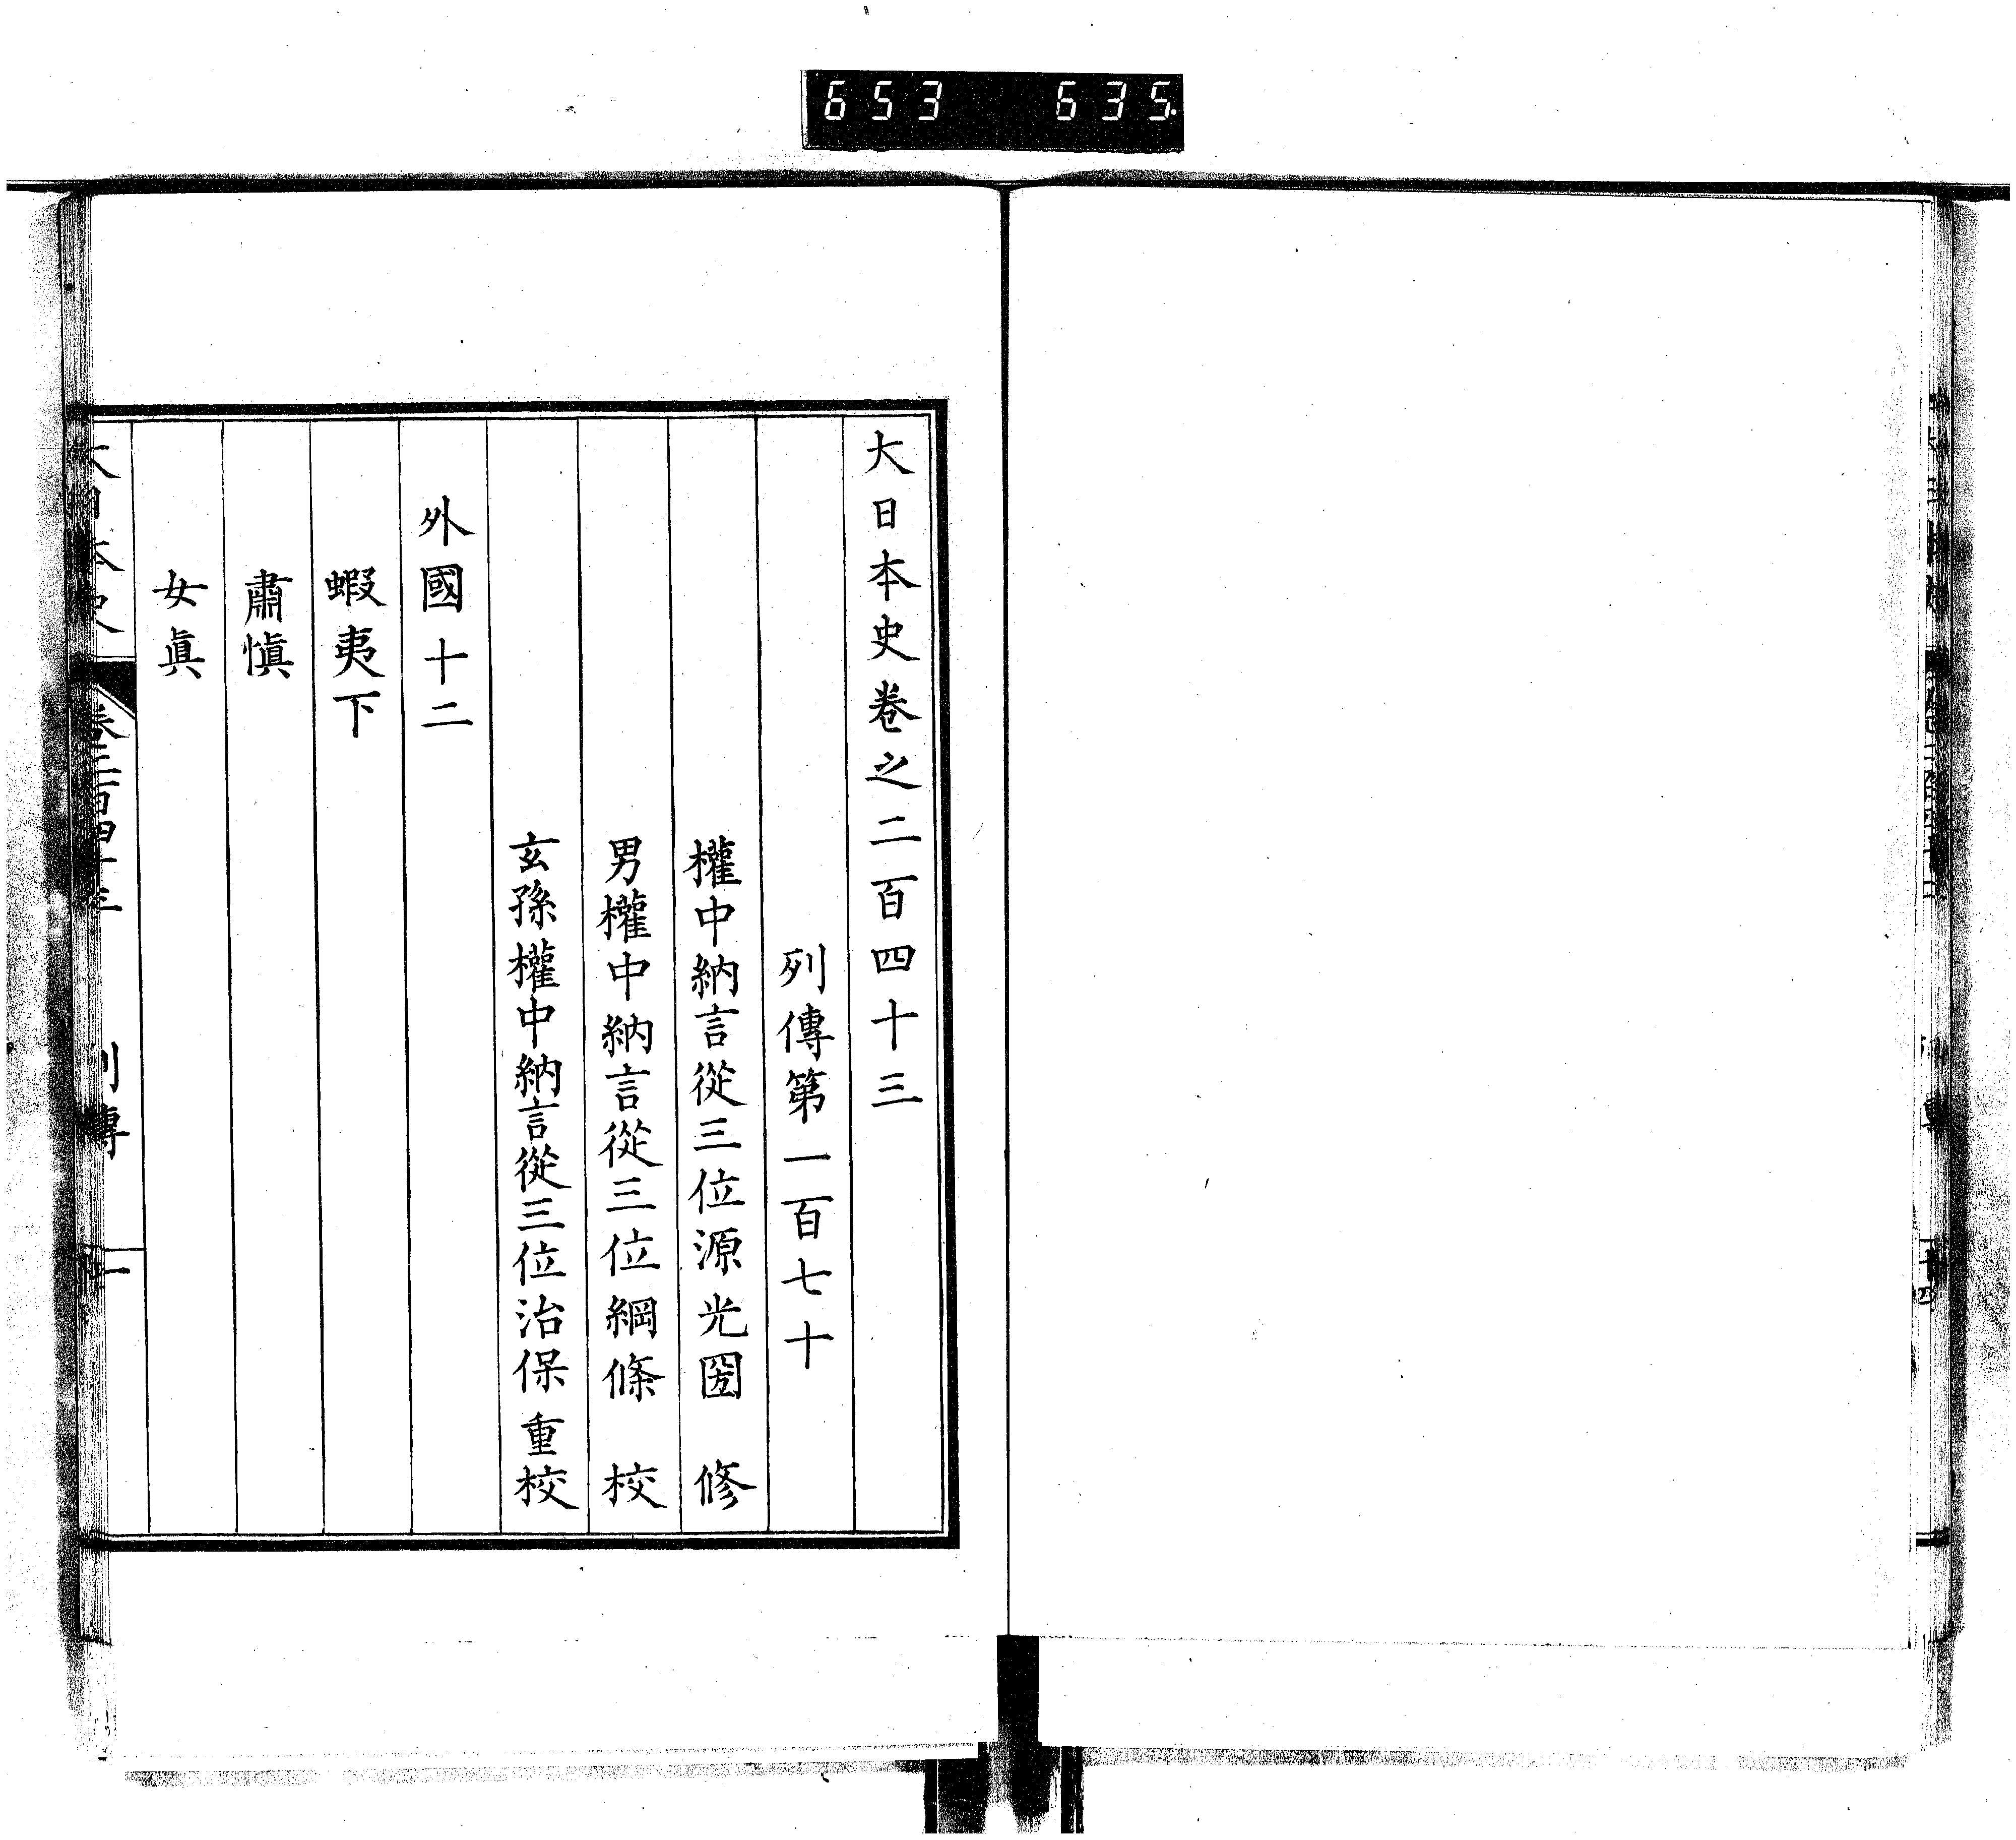 653 635
大日本史卷之二百四十三
列傳第一百七十
權中納言從三位源光圀 修
男權中納言從三位綱條 校
玄孫權中納言從三位治保 重校
外國十二
蝦夷下
肅愼
女眞
大日本史 卷二百四十三 列傳 一